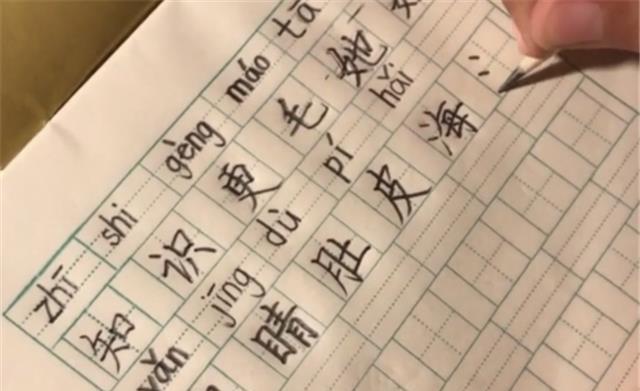 zhī shi gèng máo tā
知 识 更 毛 她
yǎn jīng dù pí hǎi
睛 肚 皮 海